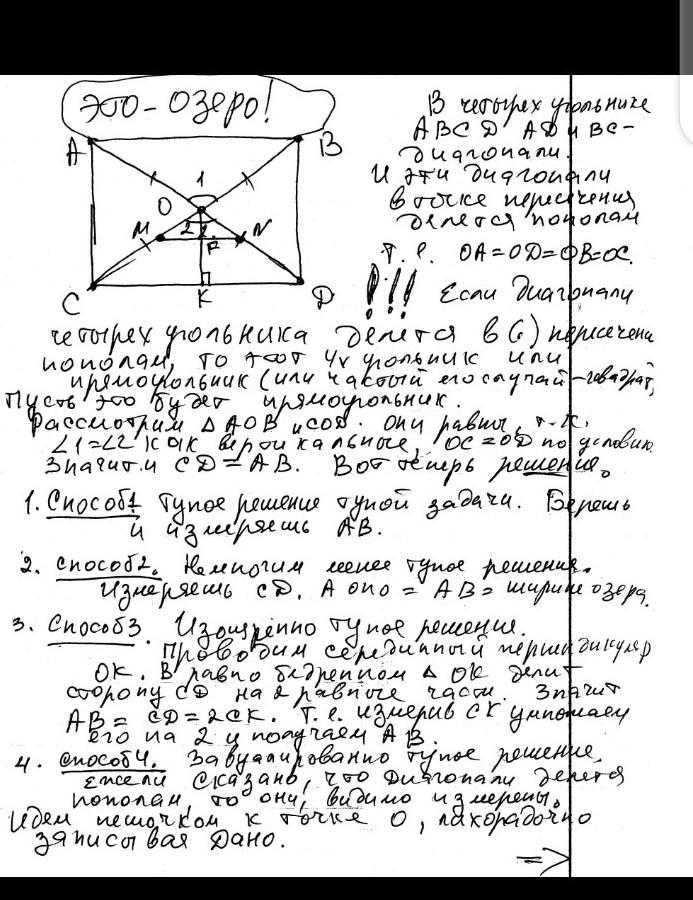 это - озеро!
A
B
1
O
M
2
2
N
R
C
K
D
В четырех угольнике
ABCD AD и BC -
диагонали.
И эти диагонали
в точке пересечения
делетя пополам
т.е. OA=OD=OB=OC.
!!! Если диагонали
четырех угольника делетя в (·) пересечени
пополам, то этот 4х угольник или
прямоугольник (или частый его случай - квадрат,
Пусть это будет прямоугольник.
Рассмотрим △ AOB и COD. они равны, т.к.
∠1=∠2 как вертикальные, OC = OD по условию
Значит и CD = AB. Вот теперь решение.
1. Способ1 Тупое решение тупой задачи. Берешь
и измеряешь AB.
2. Способ2. Немногим менее тупое решение.
Измеряешь CD. А оно = AB = ширине озера.
3. Способ3. Изощренно тупое решение.
Проводим серединный перпендикуляр
OK. В равно бедренном △ OK делит
сторону CD на 2 равные части. Значит
AB = CD = 2CK. Т.е. измерив CK умножаем
его на 2 и получаем AB.
4. способ4. Завуалированно тупое решение.
Ежели сказано, что Диагонали делетя
пополам, то они, видимо измерены.
Идем пешочком к точке O, лихорадочно
записывая Дано.
=>